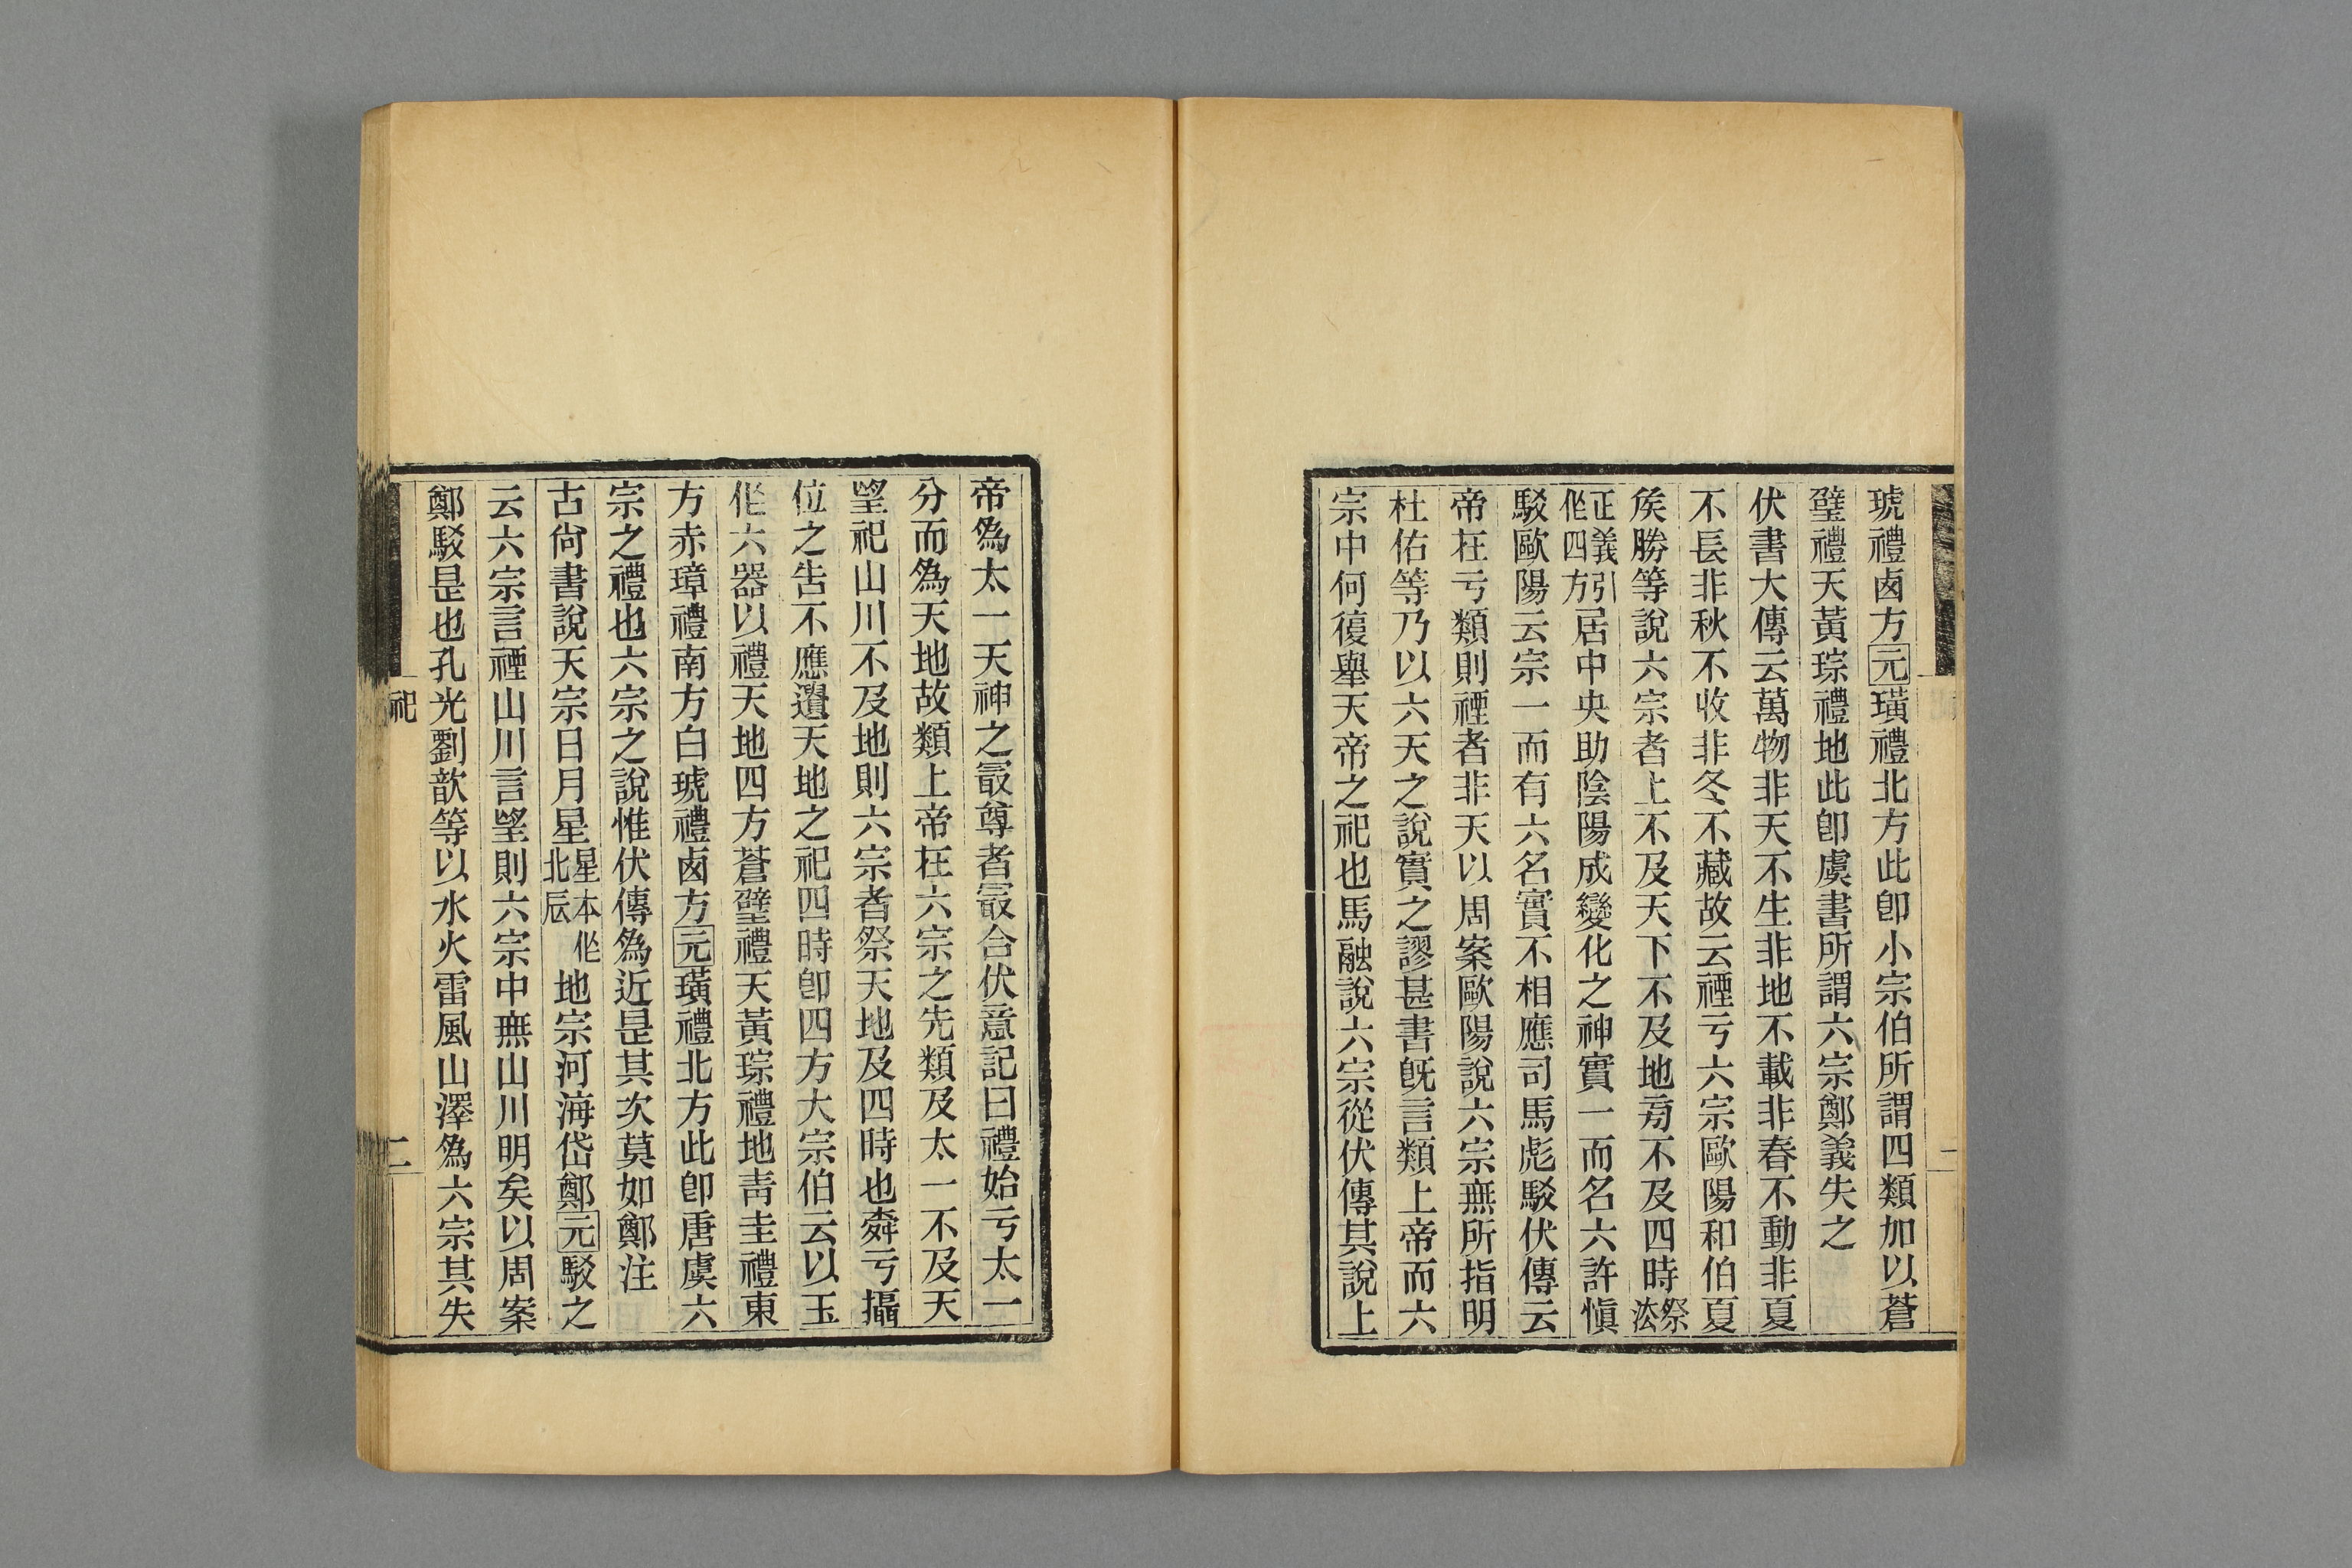 琥禮鹵方元璜禮北方此卽小宗伯所謂四類加以蒼
璧禮天黃琮禮地此卽虞書所謂六宗鄭義失之
伏書大傳云萬物非天不生非地不載非春不動非夏
不長非秋不收非冬不藏故云禋亏六宗歐陽和伯夏
矦勝等說六宗者上不及天下不及地㫄不及四時祭法
正義引作四方居中央助陰陽成變化之神實一而名六許愼
駁歐陽云宗一而有六名實不相應司馬彪駁伏傳云
帝在亏類則禋者非天以周案歐陽說六宗無所指明
杜佑等乃以六天之說實之謬甚書旣言類上帝而六
宗中何復舉天帝之祀也馬融說六宗從伏傳其說上
帝爲太一天神之最尊者最合伏意記曰禮始亏太一
分而爲天地故類上帝在六宗之先類及太一不及天
朢祀山川不及地則六宗者祭天地及四時也舜亏攝
位之告不應遺天地之祀四時卽四方大宗伯云以玉
作六器以禮天地四方蒼璧禮天黃琮禮地靑圭禮東
方赤璋禮南方白琥禮鹵方元璜禮北方此卽唐虞六
宗之禮也六宗之說惟伏傳爲近是其次莫如鄭注
古尙書說天宗日月星星本作北辰地宗河海岱鄭元駁之
云六宗言禋山川言朢則六宗中無山川明矣以周案
鄭駁是也孔光劉歆等以水火雷風山澤爲六宗其失
祀
二